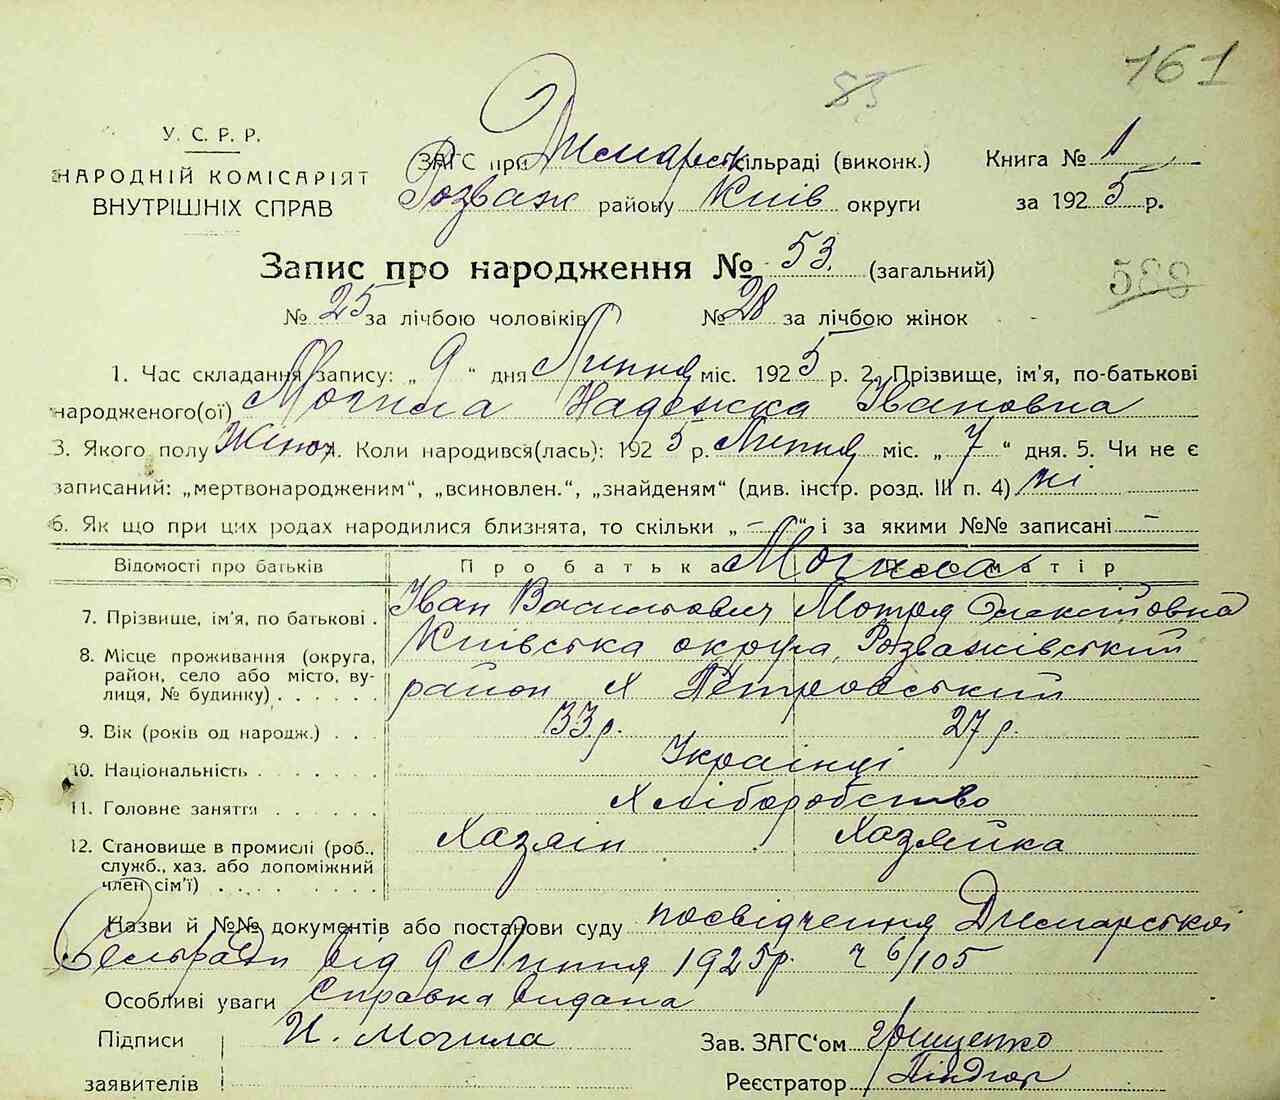 161
83
У. С. Р. Р.
НАРОДНІЙ КОМІСАРІЯТ
ВНУТРІШНІХ СПРАВ
ЗАГС при Димарськ сільраді (виконк.)
Розваж району Київ округи
Книга № 1
за 1925 р.
Запис про народження № 53. (загальний)
588
№ 25 за лічбою чоловіків № 28 за лічбою жінок
1. Час складання запису: „ 9 “ дня Липня міс. 1925 р. 2. Прізвище, ім'я, по-батькові
народженого(ої) Могила Надежка Івановна
3. Якого полу Жіноч. Коли народився(лась): 1925 р. Липня міс. „ 7 “ дня. 5. Чи не є
записаний: „мертвонародженим“, „всиновлен.“, „знайденям“ (див. інстр. розд. III п. 4) ні
6. Як що при цих родах народилися близнята, то скільки „ – “ і за якими №№ записані –
Відомості про батьків Про батька Могила Про матір
7. Прізвище, ім'я, по батькові . Іван Васильович Мотря Олексійовна
8. Місце проживання (округа, район, село або місто, вулиця, № будинку) . . . . . Київська округа, Розважівський
район х Петровський
9. Вік (років од народж.) . . . 33 р. 27 р.
10. Національність . . . . . . . Українці
11. Головне заняття . . . . . . Хліборобство
12. Становище в промислі (роб., служб., хаз. або допоміжний член сім'ї) . . . . . . . Хазяін Хазяйка
Назви й №№ документів або постанови суду посвідчення Димарської
Сельради від 9 Липня 1925 р. ч 6/105
Особливі уваги Справка видана
Підписи И. Могила Зав. ЗАГС'ом Грищенко
заявителів Реєстратор